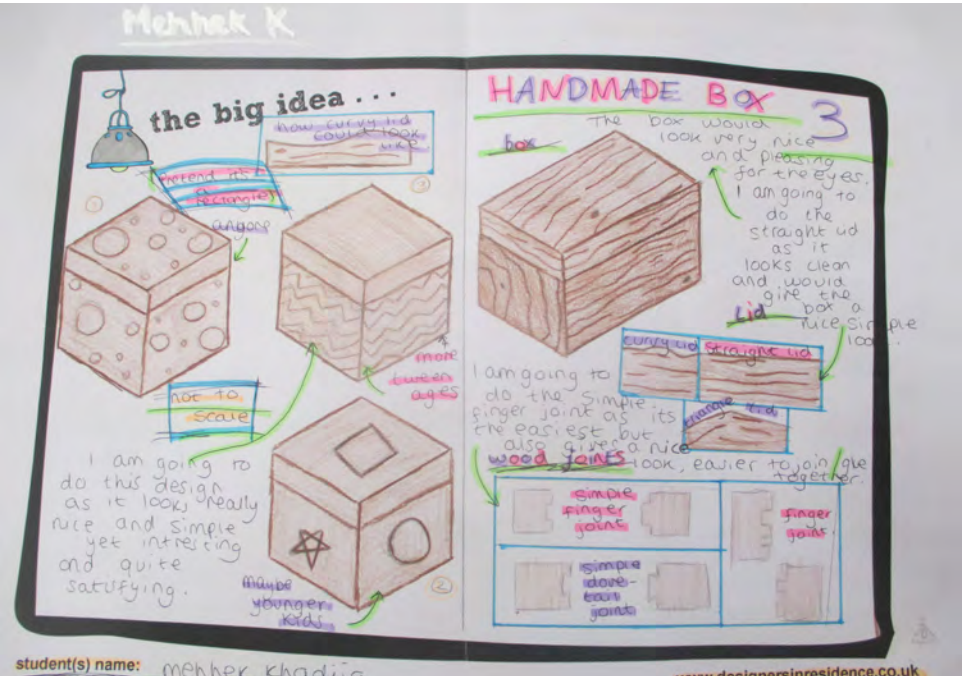 Mehhek K
the big idea ...
how curvy lid
could look
like
pretend it's
a
rectangle
1
3
anyone
more
tween
ages
not to
scale
I am going to
do this design
as it looks really
nice and simple
yet intresting
and quite
satisfying.
maybe
younger
kids
2
HANDMADE BOX
3
box
The box would
look very nice
and pleasing
for the eyes.
I am going to
do the
straight lid
as it
looks clean
and would
give the
box a
nice simple
look..
Lid
curvy lid
straight lid
triangle lid
I am going to
do the simple
finger joint as its
the easiest but
also gives a nice
look, easier to join/glue
together.
wood joints
simple
finger
joint
finger
joint
simple
dove-
tail
joint
student(s) name: mehhek khadija
www.designersinresidence.co.uk